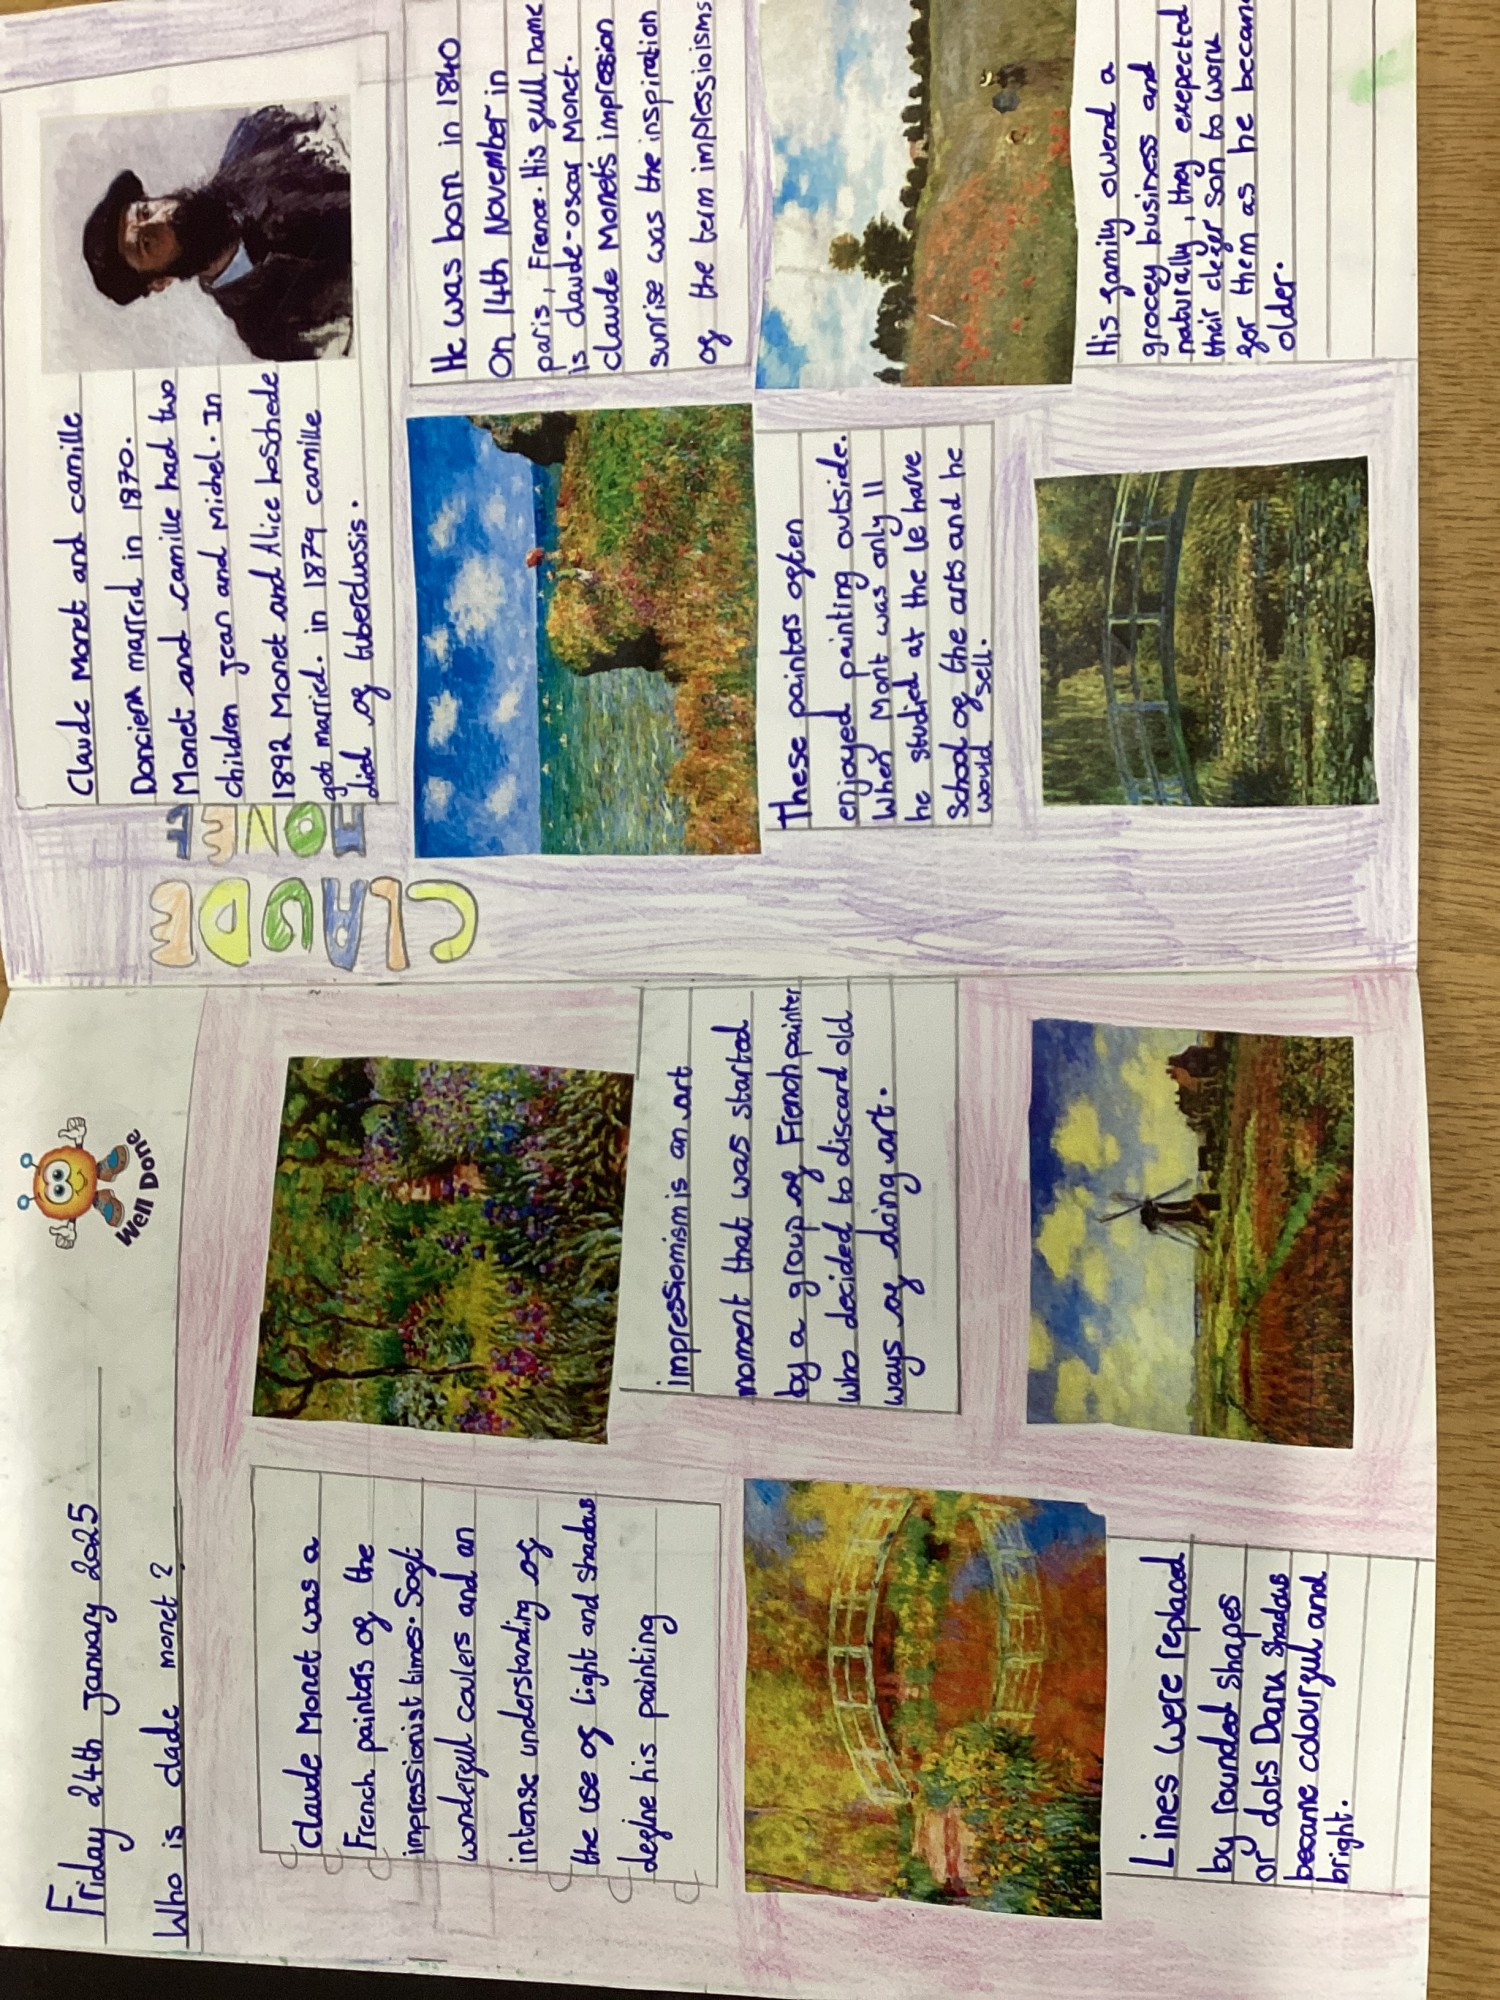 Friday 24th January 2025
Who is clade monet?
Well Done
Claude Monet was a
French painters of the
impressionist times. Soft
wonderful coulers and an
intense understanding of
the use of light and shadows
define his painting
impressionism is an art
moment that was started
by a group of French painter
who decided to discard old
ways of doing art.
Lines were replaced
by rounded shapes
or dots Dark Shadows
became colourful and
bright.
CLAUDE
MONET
Claude Monet and camille
Doncienx married in 1870.
Monet and camille had two
children jean and Michel. In
1892 Monet and Alice hoschede
got married. in 1879 camille
died of tuberclwosis.
He was born in 1840
On 14th November in
paris, France. His full name
is claude-oscar Monet.
claude Monets impression
sunrise was the inspiration
of the term impressioisms
These painters often
enjoyed painting outside.
When Mont was only 11
he studied at the le harve
School of the arts and he
would sell.
His family owend a
grocey business and
naturally, they exepected
their cleger son to work
for them as he became
older.